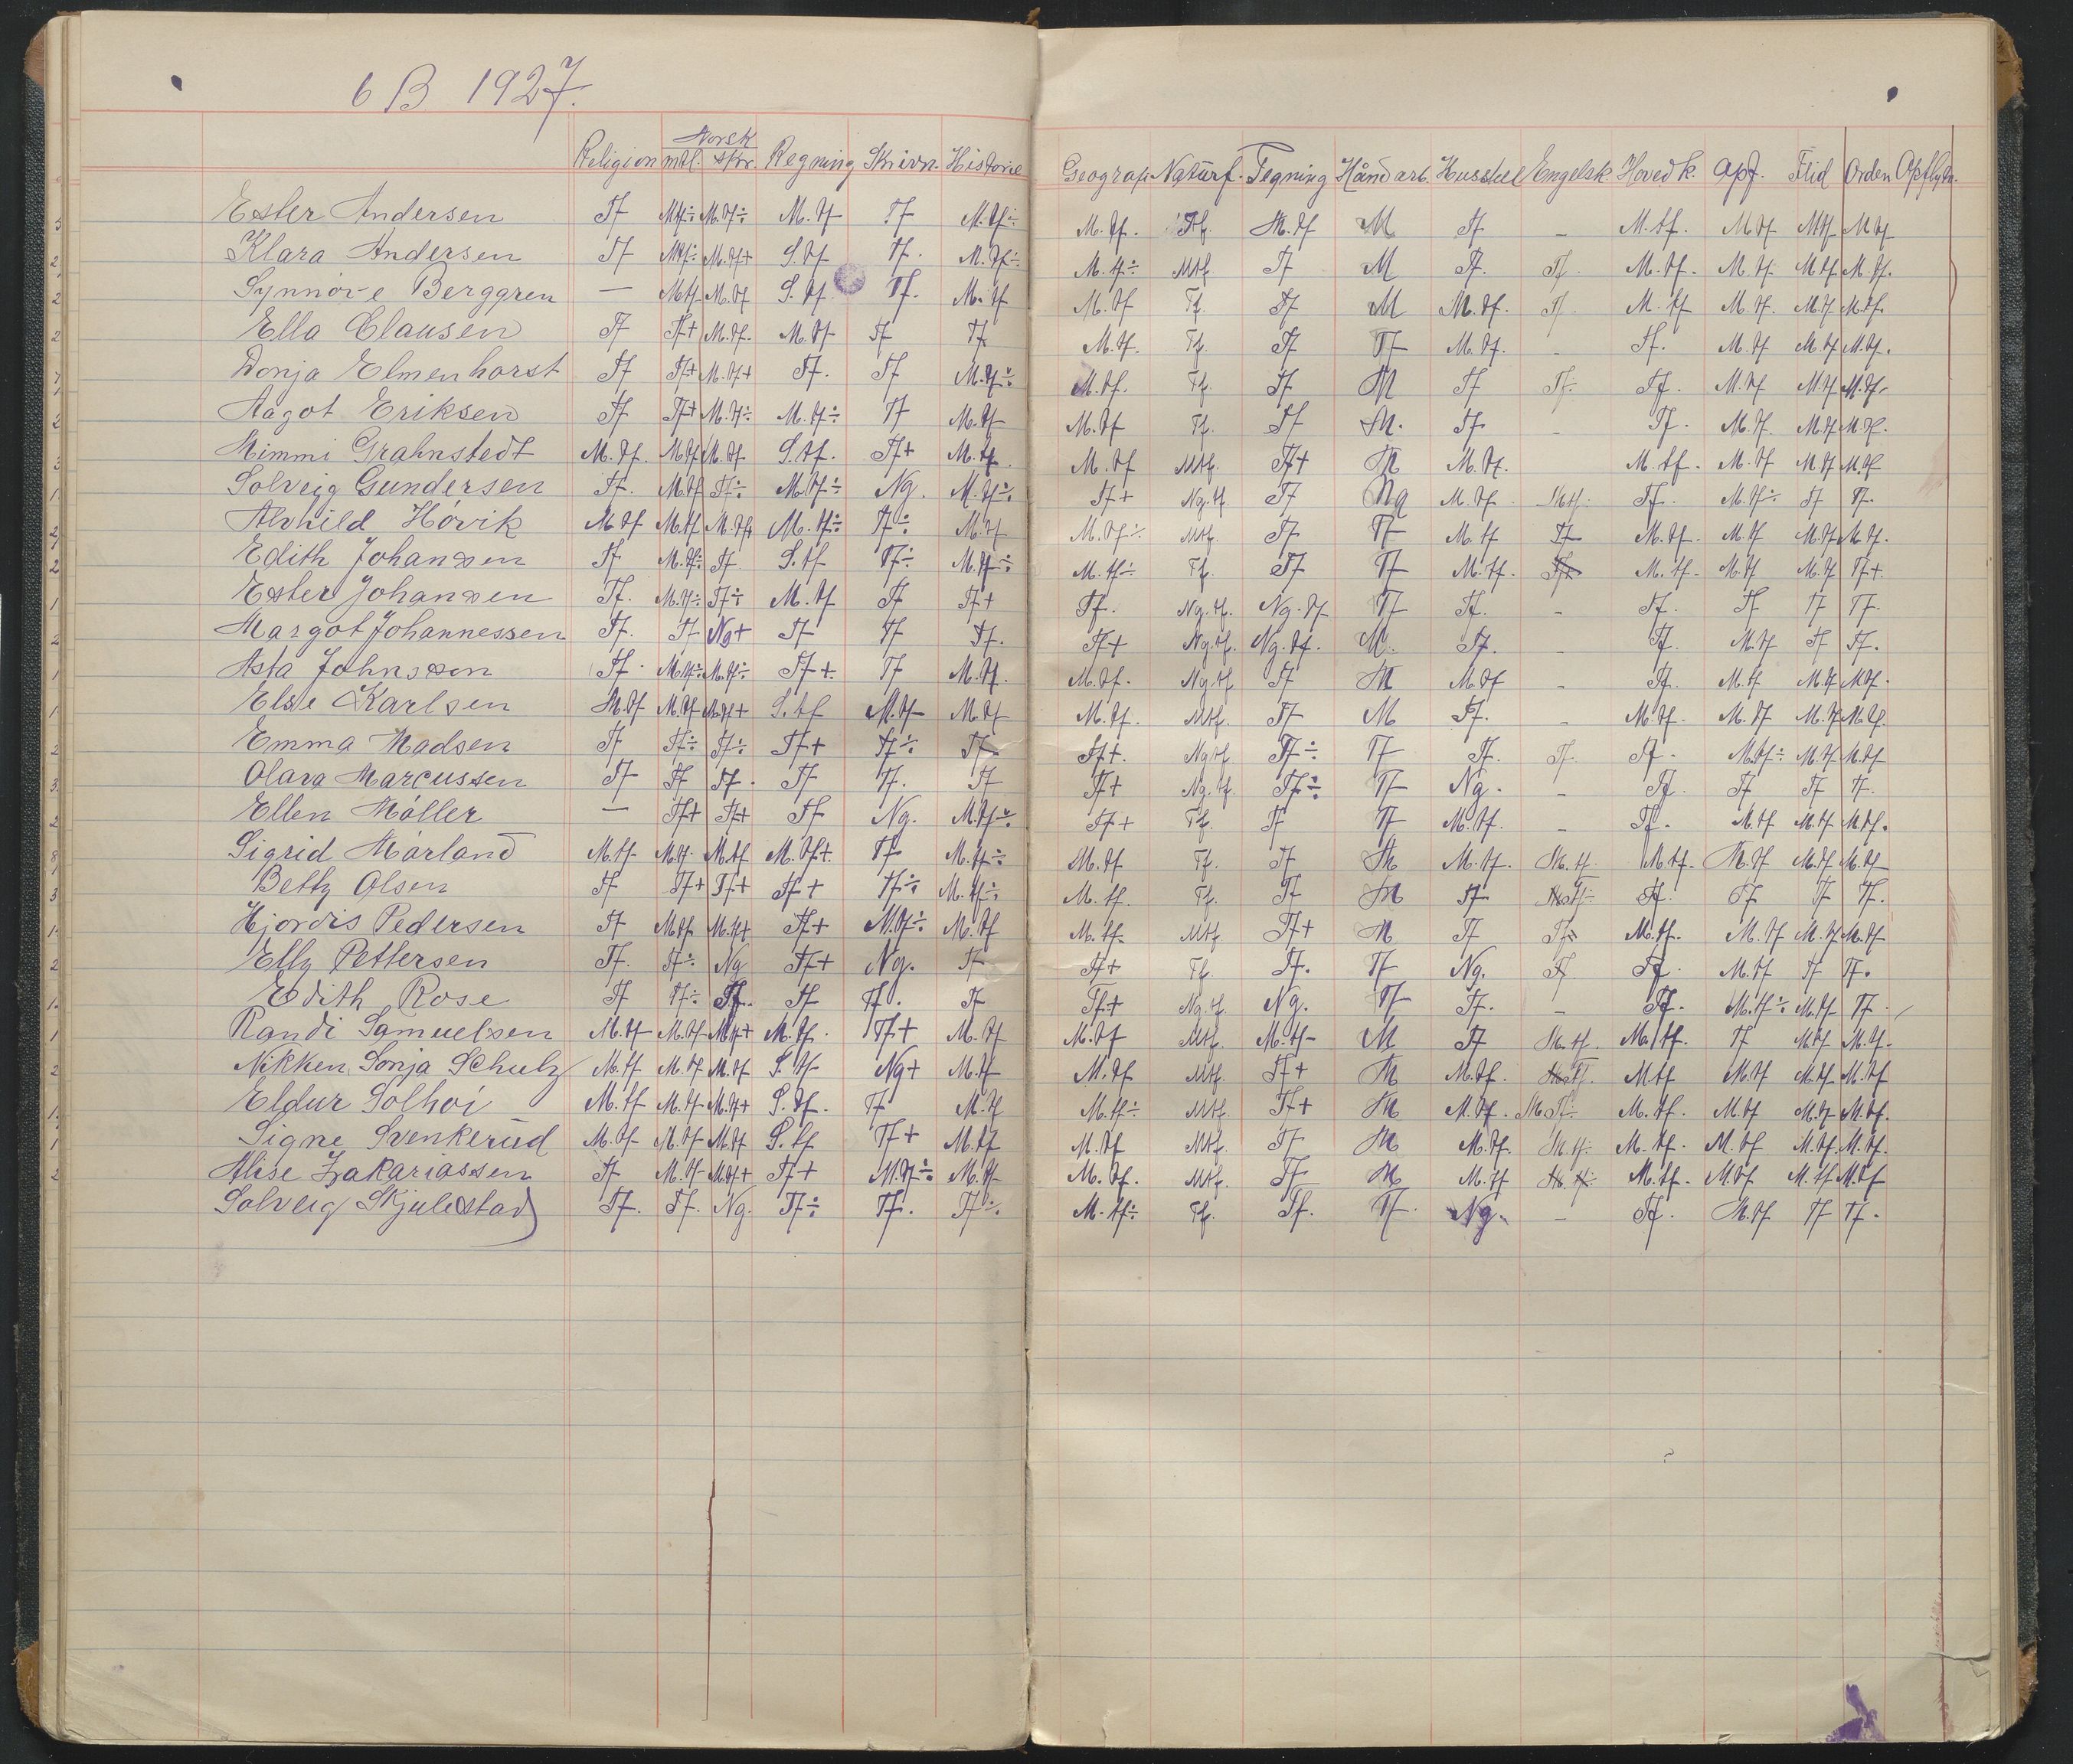 6 B 1927.
Religion Norsk mtl. skr. Regning Skrivn. Historie Geografi Naturf. Tegning Håndarb. Husstel Engelsk Hovedk. Opf. Flid Orden Opflytn.
Ester Andersen Tf M.tf÷ M.tf÷ M.tf Tf M.tf÷ M.tf. Tf. M.tf M Tf – M.tf. M.tf M.tf M.tf
Klara Andersen Tf M.tf÷ M.tf+ S.tf Tf. M.tf÷ M.tf÷ Mtf. Tf M Tf. Tf. M.tf. M.tf. M.tf M.tf.
Synnöve Berggren — M.tf M.tf S.tf Tf. M.tf M.tf Tf. Tf M M.tf. Tf. M.tf M.tf. M.tf M.tf.
Ella Clausen Tf Tf+ M.tf. M.tf Tf Tf. M.tf. Tf. Tf Tf M.tf. – Tf. M.tf M.tf M.tf.
Donja Elmenhorst Tf Tf+ M.tf+ Tf. Tf M.tf÷ M.tf. Tf. Tf M Tf Tf. Tf. M.tf M.tf M.tf.
Aagot Eriksen Tf Tf+ M.tf÷ M.tf÷ Tf M.tf M.tf Tf. Tf M. Tf. – Tf. M.tf. M.tf M.tf.
Mimmi Grahnstedt M.tf. M.tf M.tf S.tf. Tf+ M.tf. M.tf Mtf. Tf+ M M.tf. M.tf. M.tf M.tf M.tf
Solveig Gundersen Tf. M.tf Tf÷ M.tf÷ Ng. M.tf÷ Tf+ Ng.tf. Tf Ng M.tf. M.tf. Tf. M.tf÷ Tf Tf.
Alvhild Hövik M.tf M.tf M.tf M.tf÷ Tf÷ M.tf M.tf÷ Mtf. Tf Tf M.tf Tf M.tf. M.tf M.tf M.tf.
Edith Johansen Tf M.tf÷ Tf S.tf Tf÷ M.tf÷ M.tf÷ Tf. Tf Tf M.tf. Tf M.tf. M.tf M.tf Tf+.
Ester Johansen Tf. M.tf÷ Tf÷ M.tf Tf Tf+ Tf. Ng.tf. Ng.tf Tf Tf. – Tf. Tf Tf Tf.
Margot Johannessen Tf. Tf Ng+ Tf Tf Tf. Tf+ Ng.tf. Ng.tf. M. Tf. – Tf. M.tf Tf Tf.
Asta Johnssen Tf. M.tf÷ M.tf÷ Tf+. Tf M.tf. M.tf. Ng.tf. Tf M M.tf – Tf. M.tf M.tf M.tf.
Else Karlsen M.tf M.tf M.tf+ S.tf M.tf M.tf M.tf. Mtf. Tf M Tf. – M.tf. M.tf M.tf M.tf.
Emma Madsen Tf Tf÷ Tf÷ Tf+ Tf÷ Tf Tf+. Ng.tf. Tf÷ Tf Tf. Tf. Tf. M.tf÷ M.tf M.tf
Olava Marcussen Tf Tf Tf. Tf Tf. Tf Tf+ Ng.tf. Tf÷ Tf Ng. – Tf. Tf Tf Tf.
Ellen Möller — Tf+ Tf+ Tf Ng. M.tf÷ Tf+ Tf. Tf Tf M.tf. – Tf. M.tf M.tf M.tf.
Sigrid Mårland M.tf M.tf. M.tf M.tf+. Tf M.tf÷ M.tf Tf. Tf M M.tf. M.tf. M.tf. M.tf M.tf M.tf
Betty Olsen Tf Tf+ Tf+ Tf+ Tf÷ M.tf÷ M.tf. Tf. Tf M Tf Tf. Tf Tf Tf.
Hjördis Pedersen Tf M.tf M.tf+ Tf+ M.tf÷ M.tf M.tf. Mtf. Tf+ M Tf Tf÷ M.tf. M.tf M.tf M.tf
Elly Pettersen Tf. Tf÷ Ng Tf+ Ng. Tf Tf+ Tf. Tf. Tf Ng. Tf Tf. M.tf Tf Tf.
Edith Rose Tf Tf÷ Tf. Tf Tf. Tf Tf+ Ng.tf. Ng. Tf Tf. – Tf. M.tf÷ M.tf Tf.
Randi Samuelsen M.tf M.tf M.tf+ M.tf. Tf+ M.tf M.tf Mtf. M.tf M Tf M.tf. M.tf. Tf M.tf M.tf.
Nikken Sonja Schulz M.tf M.tf M.tf S.tf Ng+ M.tf M.tf Mtf. Tf+ M M.tf. Tf. M.tf M.tf M.tf M.tf
Eldur Solhöi M.tf M.tf M.tf+ S.tf. Tf M.tf M.tf÷ Mtf. Tf+ M M.tf. M.tf. M.tf M.tf M.tf.
Signe Svenkerud M.tf M.tf M.tf S.tf Tf+ M.tf M.tf Mtf. Tf M M.tf. M.tf. M.tf. M.tf M.tf. M.tf.
Alise Zakariassen Tf M.tf M.tf+ Tf+ M.tf÷ M.tf M.tf. Mtf. Tf M M.tf M.tf. M.tf M.tf M.tf
Solveig Skjulestad Tf. Tf. Ng. Tf÷ Tf. Tf÷ M.tf÷ Tf. Tf. Tf. Ng. – Tf. M.tf Tf Tf.